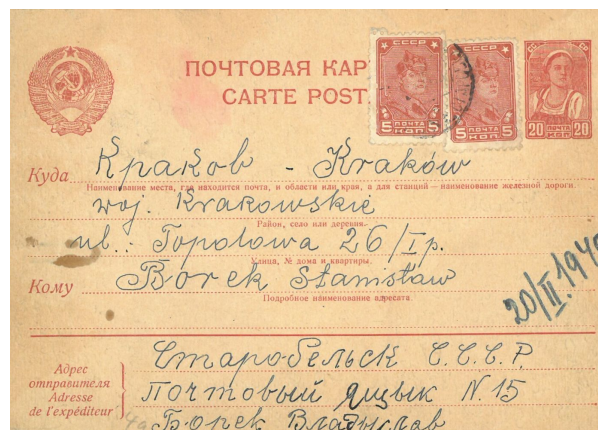 ПОЧТОВАЯ КАР
CARTE POST
СССР
5 ПОЧТА КОП. 5
СССР
5 ПОЧТА КОП. 5
20 ПОЧТА КОП. 20
Куда Краков - Kraków
Наименование места, где находится почта, и области или края, а для станций — наименование железной дороги.
woj. Krakowskie
Район, село или деревня.
ul.: Topolowa 26/I p.
Улица, № дома и квартиры.
Кому Borek Stanisław
Подробное наименование адресата
20/II.1940
Адрес отправителя
Adresse de l'expéditeur
Старобельск С.С.С.Р.
Почтовый ящык N. 15
Борек Владыслав